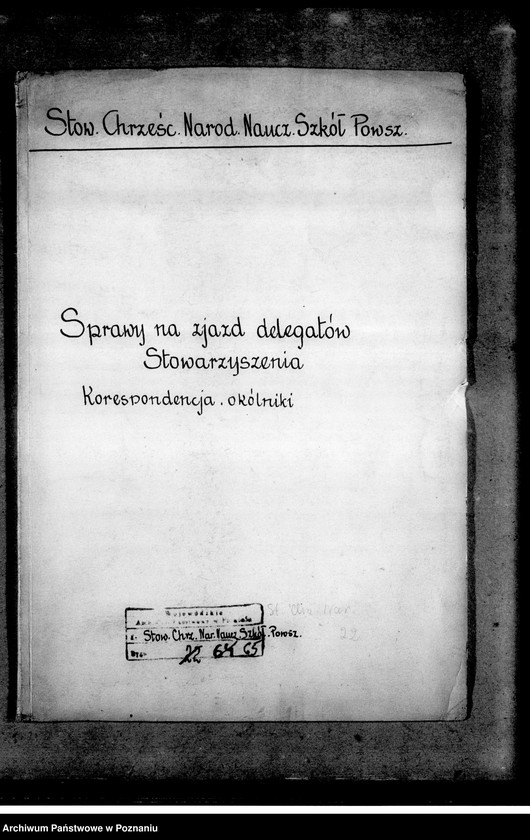 Stow. Chrześc. Narod. Naucz. Szkół Powsz.
Sprawy na zjazd delegatów
Stowarzyszenia
Korespondencja. okólniki
Wojewódzkie
Stow. Chrz. Nar. Naucz. Szkół. Powsz.
22 64 65
22
Archiwum Państwowe w Poznaniu